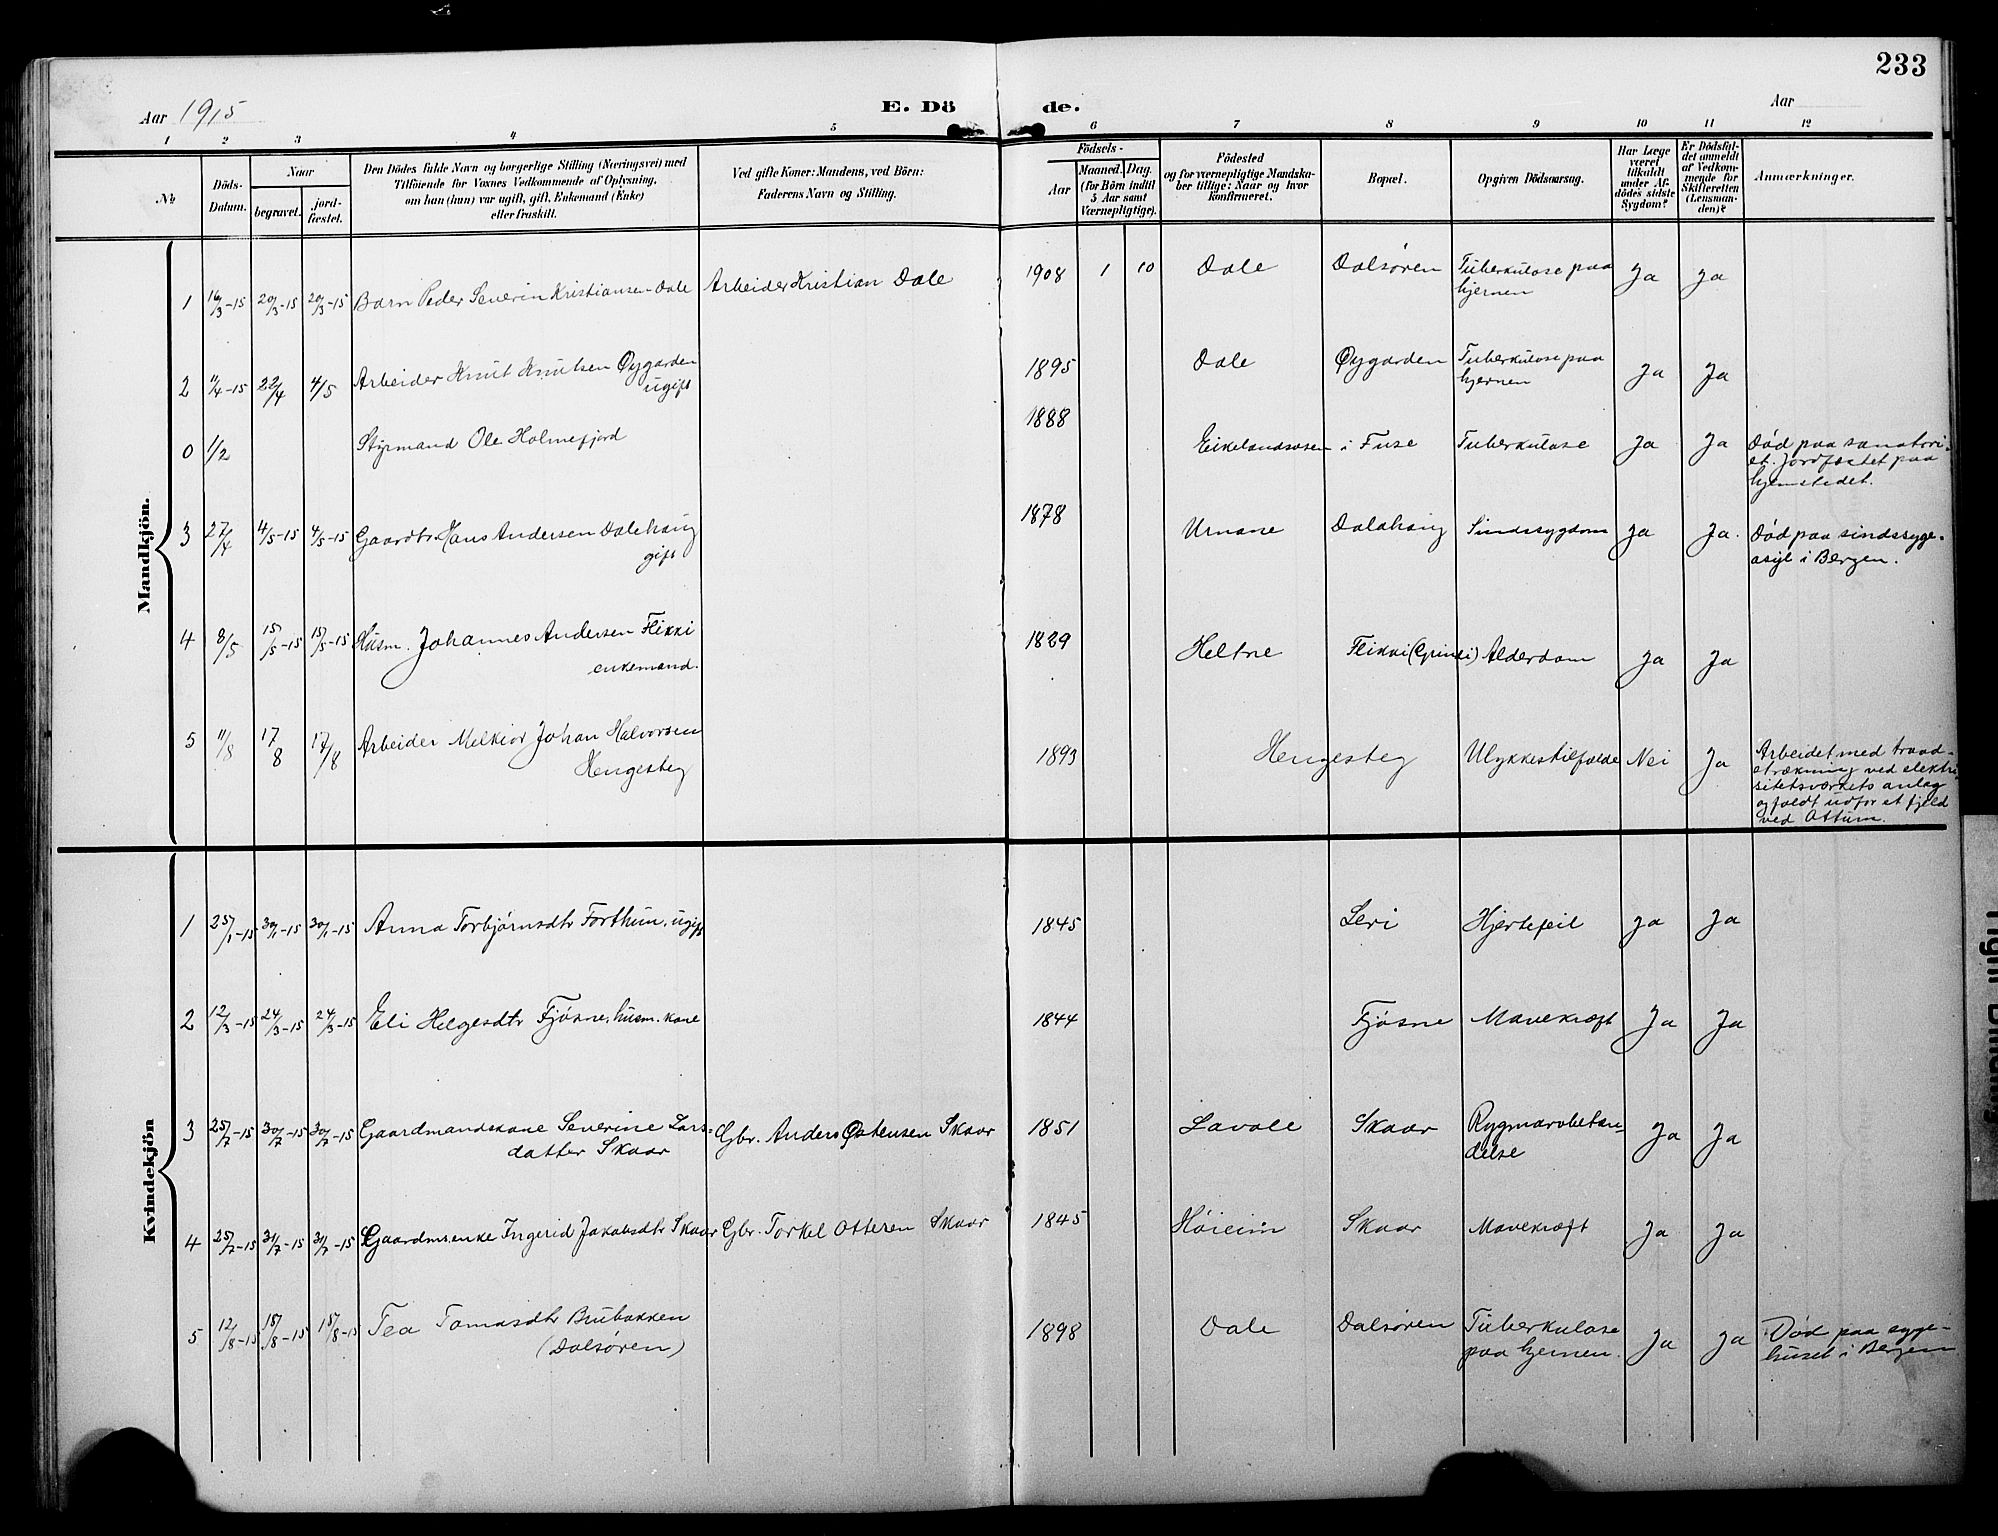 233
Aar 1915
E. Dö de.
Aar
1 2 3 4 5 6 7 8 9 10 11 12
№
Döds-Datum.
Naar
begravet.
jord-fæstet.
Den Dödes fulde Navn og borgerlige Stilling (Næringsvei) med
Tilföiende for Voxnes Vedkommende af Oplysning,
om han (hun) var ugift, gift, Enkemand (Enke)
eller fraskilt.
Ved gifte Koner: Mandens, ved Börn:
Faderens Navn og Stilling.
Födsels-
Aar
Maaned. Dag.
(for Börn indtil
5 Aar samt
Værnepligtige).
Födested
og for værnepligtige Mandska-
ber tillige: Naar og hvor
konfirmeret.
Bopæl.
Opgiven Dödsaarsag.
Har Læge
været
tilkaldt
under Af-
dödes sidste
Sygdom?
Er Dödsfal-
det anmeldt
af Vedkom-
mende for
Skifteretten
(Lensman-
den)?
Anmærkninger.
Mandkjön.
1 16/3-15 20/3-15 20/3-15 Barn Peder Severin Kristiansen Dale Arbeider Kristian Dale 1908 1 10 Dale Dalsøren Tuberkulose paa
hjernen Ja Ja
2 11/4-15 22/4 4/5 Arbeider Knut Knutsen Øygarden
ugift 1895 Dale Øygarden Tuberkulose paa
hjernen Ja Ja
0 1/2 Styrmand Ole Holmefjord 1888 Eikelandsosen i Fuse Tuberkulose Ja Ja Død paa sanatori-
et. Jordfæstet paa
hjemstedet.
3 27/4 4/5-15 4/5-15 Gaardbr. Hans Andersen Dalehaug
gift 1878 Urnane Dalahaug Sindssygdom Ja Ja. Død paa sindssyge-
asyl i Bergen.
4 8/5 15/5-15 15/5-15 Husm. Johannes Andersen Flikki
enkemand. 1829 Heltne Flikki Alderdom Ja Ja
5 11/8 17/8 17/8 Arbeider Melkior Johan Halvorsen
Hengesteg 1893 Hengesteg Ulykkestilfælde Nei Ja Arbeidet med traad-
strækning ved elektri-
sitetsværkets anlæg
og faldt utfor et fjeld
ved Ottum.
Kvindekjön
1 25/1-15 30/1-15 30/1-15 Anna Torbjørnsdtr Forthun, ugift 1845 Leri Hjertefeil Ja Ja
2 12/3-15 24/3-15 24/3-15 Eli Helgesdtr Fjøsne, husm. kone 1844 Fjøsne Mavekræft Ja Ja
3 25/7-15 30/7-15 30/7-15 Gaardmandskone Severine Lars-
datter Skaar Gbr. Anders Østensen Skaar 1851 Lavole Skaar Rygmarvbetæn-
delse Ja Ja
4 25/7-15 31/7-15 31/7-15 Gaardmsenke Ingerid Jakobsdtr Skaar Gbr. Torkel Ottesen Skaar 1845 Høieim Skaar Mavekræft Ja Ja
5 12/8-15 18/8-15 18/8-15 Tea Tomasdtr Brubakken
(Dalsøren) 1898 Dale Dalsøren Tuberkulose
paa hjernen. Ja Ja Død paa syge-
huset i Bergen
Tight Binding